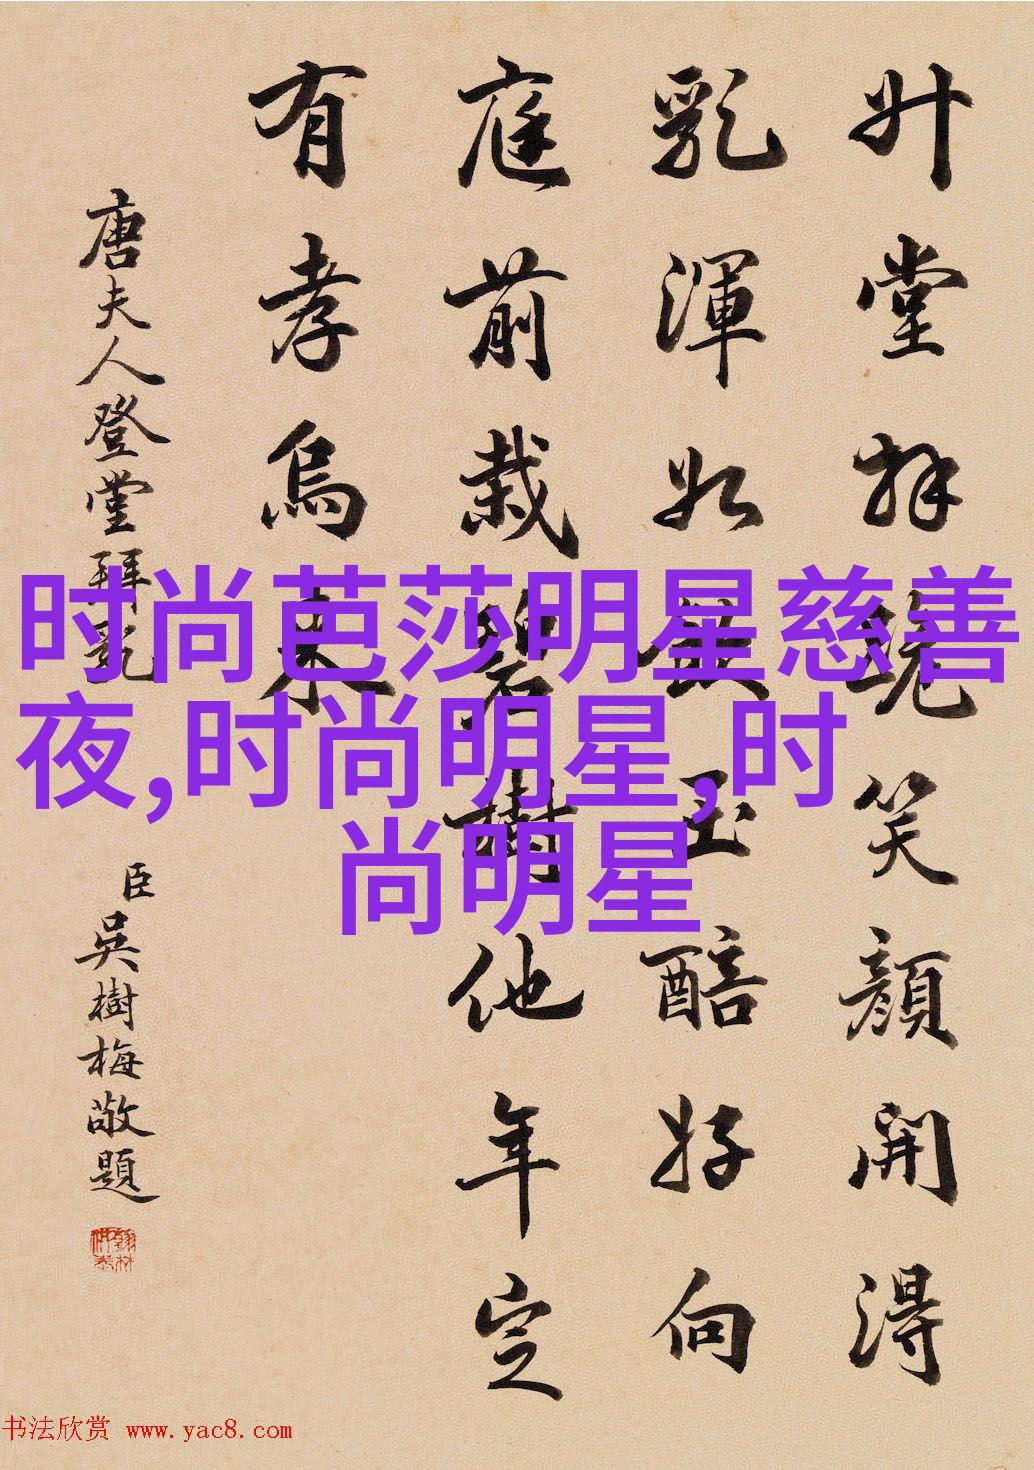 升堂拜笑顏開得
乳渾如玉醅好向
庭前栽碧樹他年定
有孝烏來
唐夫人登堂拜乳
臣吳樹梅敬題
时尚芭莎明星慈善
夜,时尚明星,时
尚明星
书法欣赏 www.yac8.com